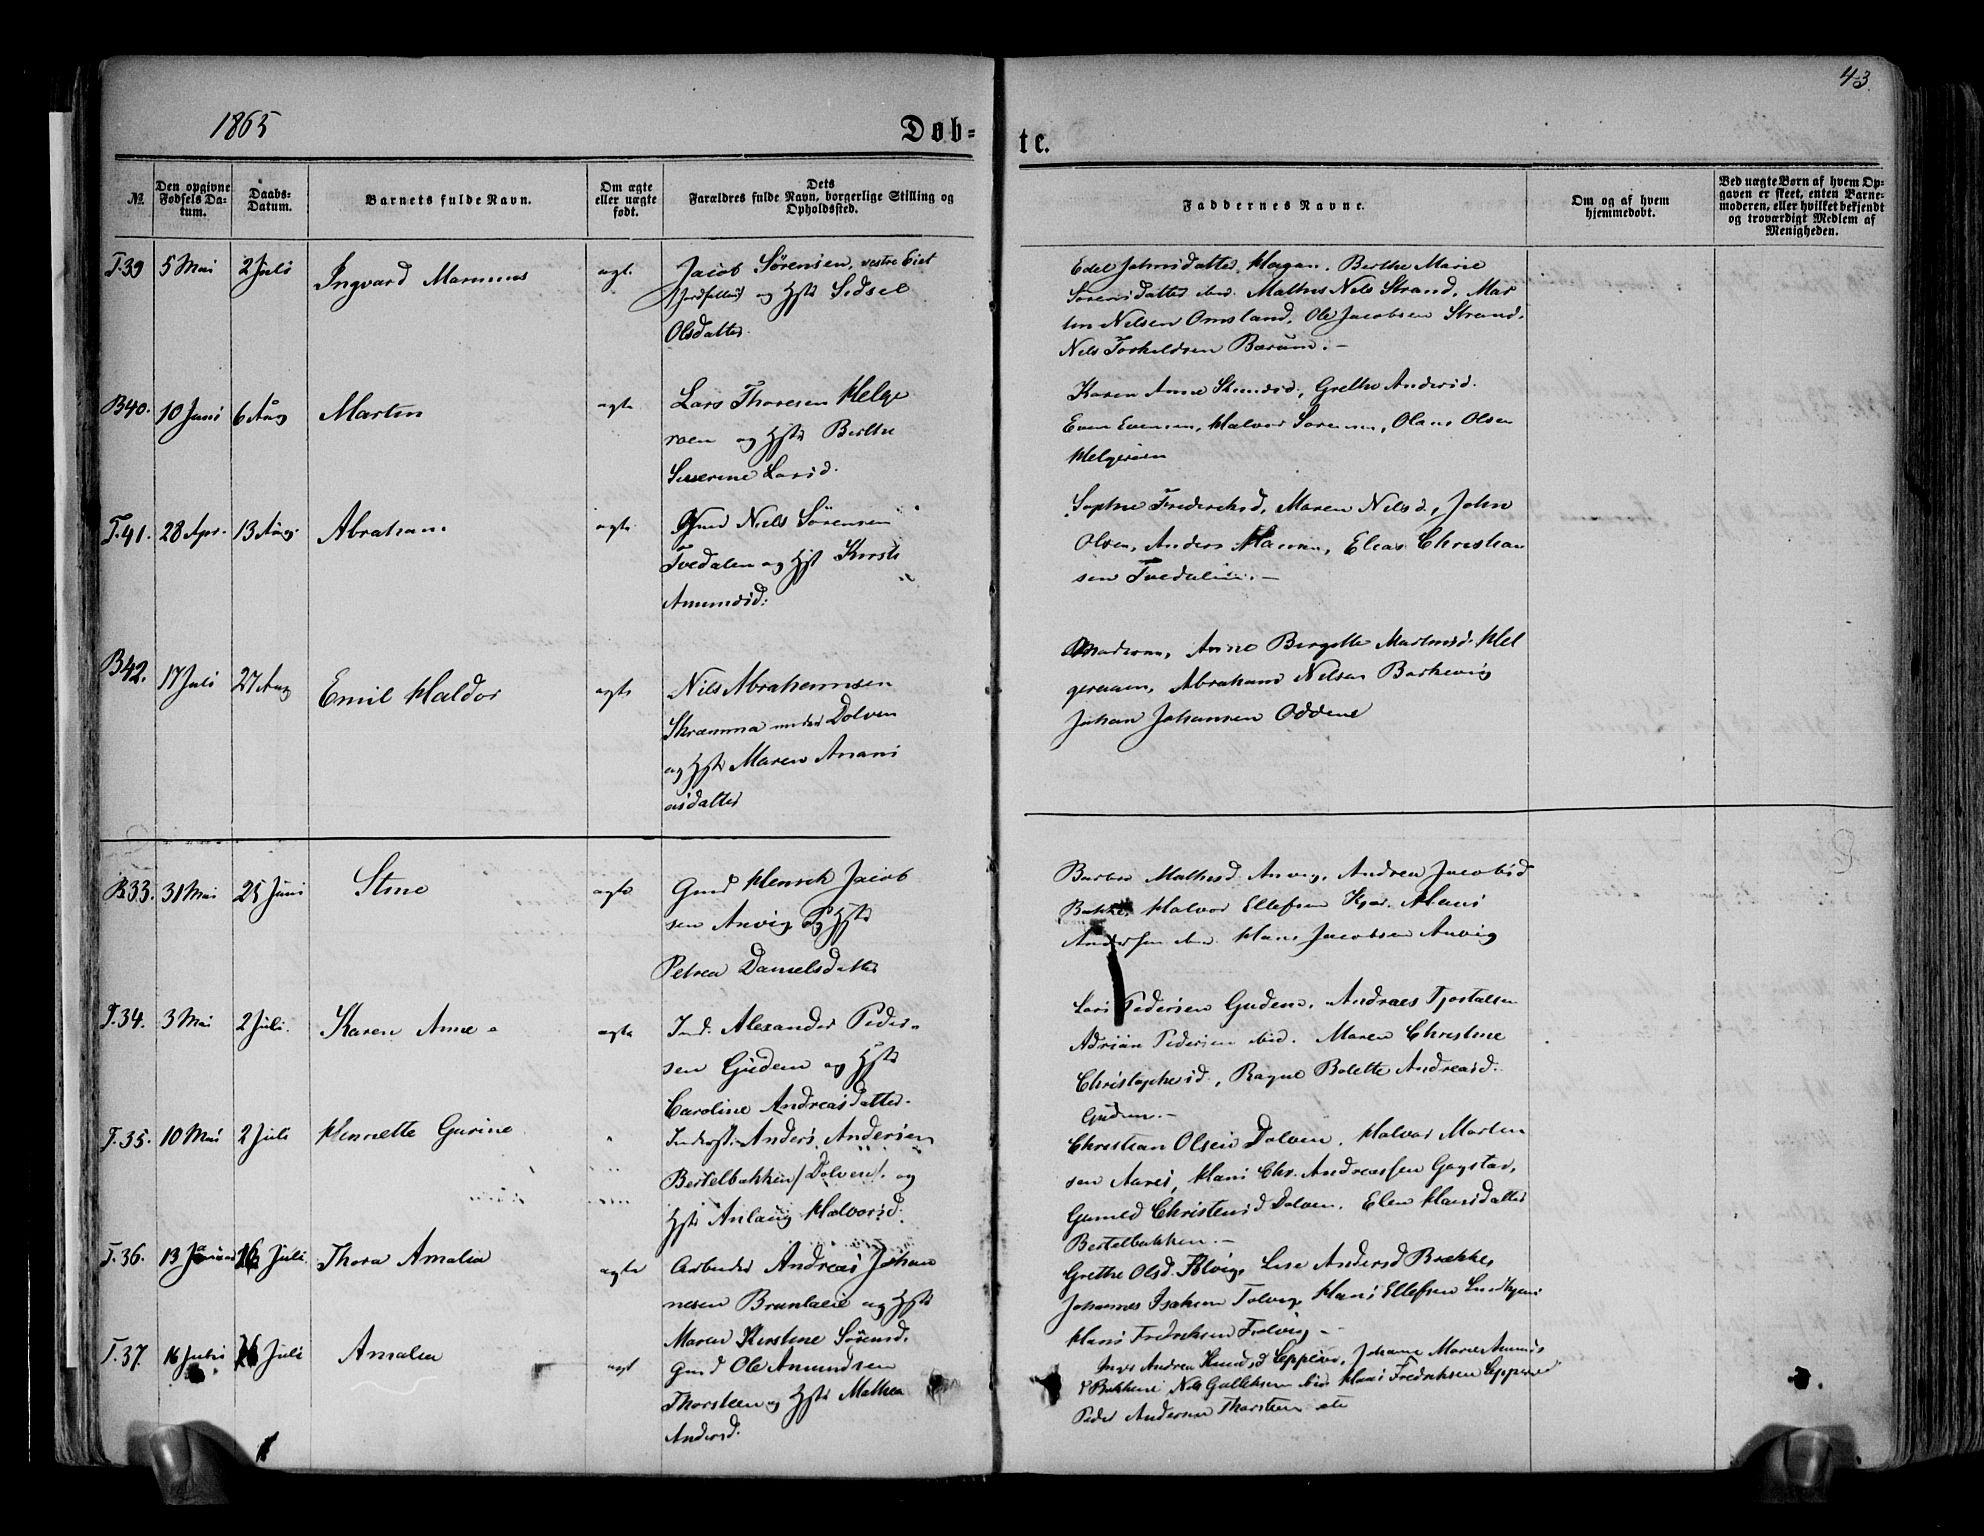 1865
Døb-
te.
43.
No.
Den opgivne
Fødsels Da-
tum.
Daabs-
Datum.
Barnets fulde Navn.
Om ægte
eller uægte
født.
Dets
Forældres fulde Navn, borgerlige Stilling og
Opholdssted.
Faddernes Navne.
Om og af hvem
hjemmedøbt.
Ved uægte Børn af hvem Op-
gaven er skeet, enten Barne-
moderen, eller hvilket bekjendt
og troværdigt Medlem af
Menigheden.
T.39 5 Mai 2 Juli Ingvard Marinius ægt.
Jacob Sørensen,
og Hst Sidsel
Olsdatter
Berthe Marie
Sørensdatter ibid. Nils Strand, Mar
tin Nelsen Omsland, Ole Jacobsen Strand,
Nils Torkeldsen Bærum.-
B40. 10 Juni 6 Aug Martin ægte
Lars Thoresen Helge
roen og Hst Berthe
Severine Larsd.
Karen Anne Grethe Andersd.
Even Evensen, Halvor Sørensen, Olaus Olsen
Helgeroen
T.41. 28 Apr. 13 Aug Abraham ægte
Gmd Niels Sørensen
Tvedalen og Hst Kirsti
Amundsd:
Sophie Frederiksd, Maren Nilsd, John
Olsen, Anders Hansen, Elias Christian
sen Tvedalen.-
B42. 17 Juli 27 Aug Emil Haldor ægte
Nils Abrahamsen
Skræmma under Dolven
og Hst Maren Anani
asdatter
Moderen, Anne Birgitte Martinsd. Hel
geroen, Abraham Nilsen Barkevig
Johan Johansen Oddene
B33. 31 Mai 25 Juni Stine ægte
Gmd Henrik Jacob
sen Anvig og Hst
Petrea Danielsdatter
Barbro Mathisd Anvig, Andrea Jacobsd
Bakke, Halvor Ellefsen Kjær, Hans
Andersen ibid. Hans Jacobsen Anvig
T.34. 3 Mai 2 Juli. Karen Anne ægte
Ind. Alexander Peder-
sen Guden og Hst
Caroline Andreasdatter.
Lars Pedersen Guden, Andreas Tjostolsen
Adrian Pedersen ibid. Maren Christine
Christophersd, Ragne Bolette Andreasd.
Guden.-
T.35. 10 Mai 2 Juli Henriette Gurine
Inderst. Anders Andersen
Bertelbakken /Dolven/. og
Hst Anlaug Halvorsd.
Christian Olsen Dolven, Halvor Marten
sen Aarø, Hans Chr. Andreassen Gogstad,
Gunild Christensd Dolven, Elen Hansdatter
Bertelbakken.-
T.36. 13 Januar 16 Juli. Thora Amalia ægte
Arbeider Andreas Johan
nesen Brunlanæs og Hst
Maren Kirstine Sørensd.
Grethe Olsd. Lise Andersd Brække,
Johannes Isaksen Hans Ellefsen
Hans Fredriksen
T.37. 16 16 Juli Amalia ægt
Gmd Ole Amundsen
Thorsteen og Hst Mathea
Andersd.
Inger Andrea Knudsd Eppeno, Johanne Marie
Bakkene Nils Gulleksen ibid Hans Fredriksen
Peder Andersen Thorsteen